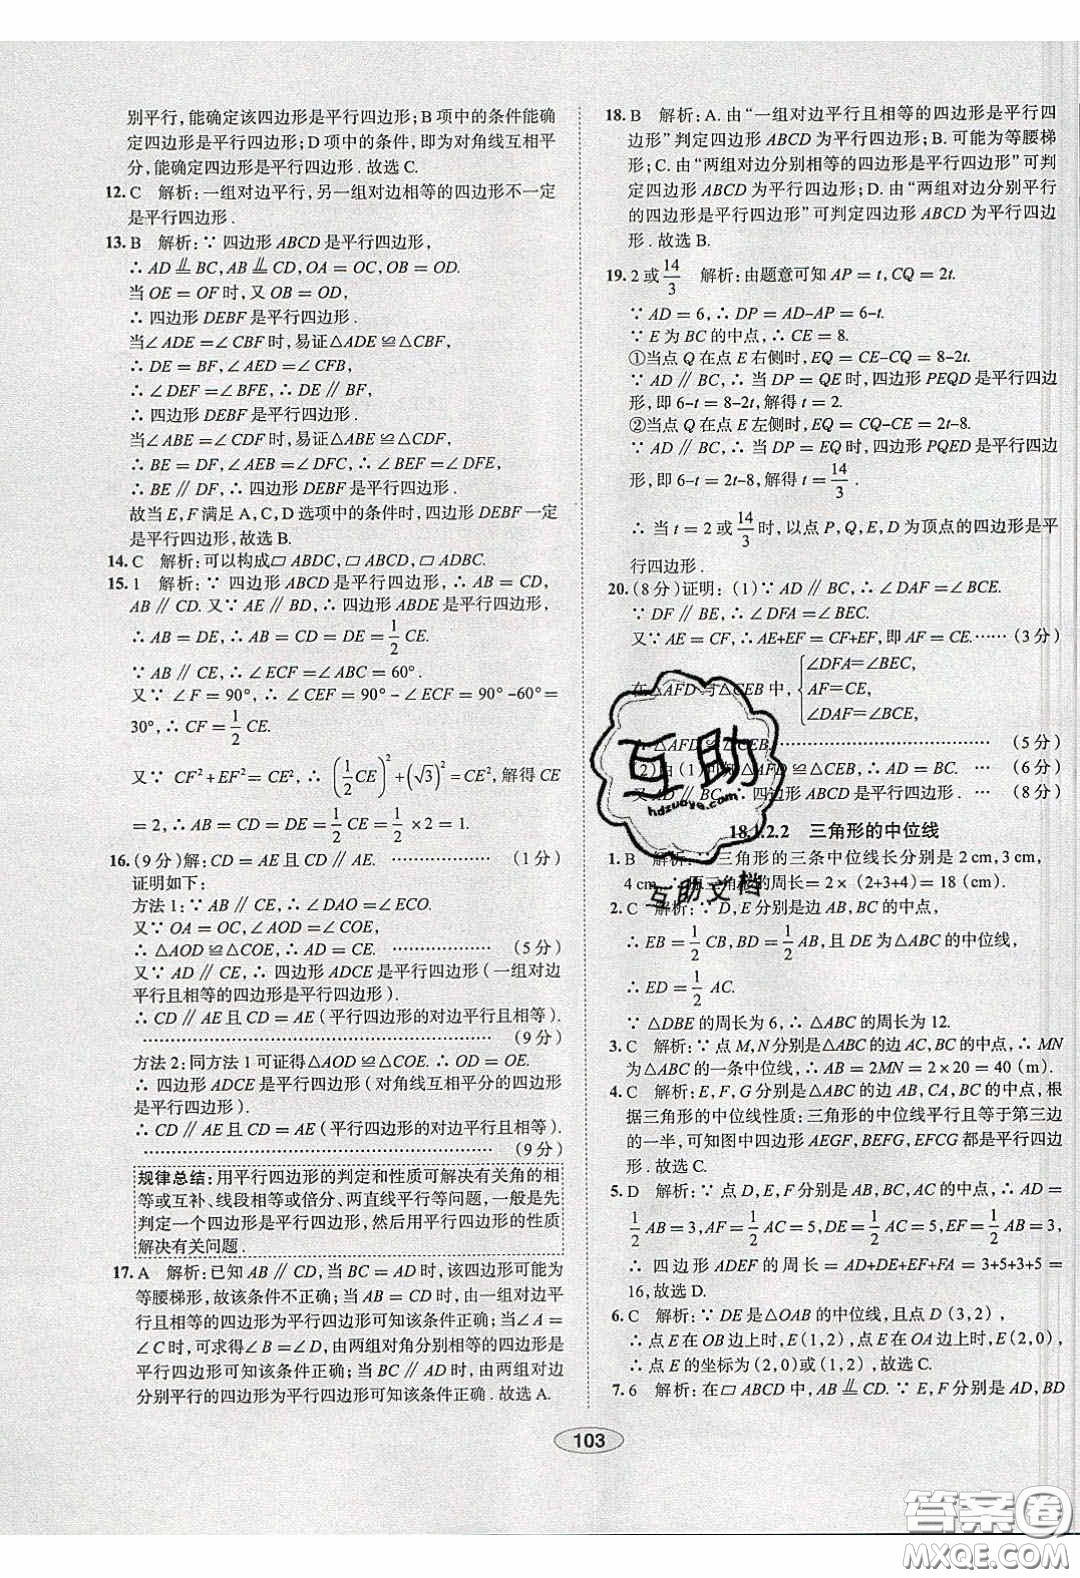 别平行,能确定该四边形是平行四边形;B项中的条件能确
定四边形是平行四边形;D项中的条件,即为对角线互相平
分,能确定四边形是平行四边形.故选C.
12. C 解析:一组对边平行,另一组对边相等的四边形不一定
是平行四边形.
13. B 解析:∵ 四边形ABCD是平行四边形,
∴ AD ∥= BC,AB ∥= CD,OA = OC,OB = OD.
当 OE = OF 时,又 OB = OD,
∴ 四边形 DEBF 是平行四边形.
当∠ADE =∠CBF时,易证△ADE ≌△CBF,
∴ DE = BF,∠AED =∠CFB.
∴ ∠DEF =∠BFE,∴ DE ∥ BF.
∴ 四边形 DEBF 是平行四边形.
当∠ABE =∠CDF时,易证△ABE ≌△CDF,
∴ BE = DF,∠AEB =∠DFC,∴ ∠BEF =∠DFE,
∴ BE ∥ DF,∴ 四边形 DEBF 是平行四边形.
故当E,F满足A,C,D选项中的条件时,四边形DEBF一定
是平行四边形,故选B.
14. C 解析:可以构成▱ABDC,▱ABCD,▱ADBC.
15. 1 解析:∵ 四边形ABCD是平行四边形,∴ AB = CD,
AB ∥ CD. 又∵ AE ∥ BD,∴ 四边形 ABDE 是平行四边形,
∴ AB = DE,∴ AB = CD = DE = 1/2 CE.
∵ AB ∥ CE,∴ ∠ECF =∠ABC = 60°.
又∵ ∠F = 90°,∴ ∠CEF = 90°-∠ECF = 90°-60°=
30°,∴ CF = 1/2 CE.
又∵ CF²+EF²= CE²,∴ (1/2 CE)²+(√3)²= CE²,解得 CE
= 2,∴ AB = CD = 1/2 CE = 1/2 × 2 = 1.
16. (9分)解:CD = AE且CD ∥ AE. ……………… (1分)
证明如下:
方法1:∵ AB ∥ CE,∴ ∠DAO =∠ECO.
又∵ OA = OC,∠AOD =∠COE,
∴ △AOD ≌△COE,∴ AD = CE. ……………… (5分)
又∵ AD ∥ CE,∴ 四边形ADCE是平行四边形(一组对边
平行且相等的四边形是平行四边形).
∴ CD ∥ AE且CD = AE(平行四边形的对边平行且相等).
……………………………………………………… (9分)
方法2:同方法1可证得△AOD ≌△COE,∴ OD = OE.
∴ 四边形ADCE是平行四边形(对角线互相平分的四边形
是平行四边形).
∴ CD ∥ AE且CD = AE(平行四边形的对边平行且相等).
……………………………………………………… (9分)
规律总结:用平行四边形的判定和性质可解决有关角的相
等或互补、线段相等或倍分、两直线平行等问题,一般是先
判定一个四边形是平行四边形,然后用平行四边形的性质
解决有关问题.
17. A 解析:已知AB ∥ CD,当BC = AD时,该四边形可能为
等腰梯形,故该条件不正确;当AB = CD时,由一组对边平
行且相等的四边形为平行四边形可知该条件正确;当∠A =
∠C时,可求得∠B =∠D,由两组对角分别相等的四边形是
平行四边形可知该条件正确;当BC ∥ AD时,由两组对边
分别平行的四边形为平行四边形可知该条件正确.故选A.
18. B 解析:A.由“一组对边平行且相等的四边形是平行四
边形”判定四边形ABCD为平行四边形;B.可能为等腰梯
形;C.由“两组对边分别相等的四边形是平行四边形”可判
定四边形ABCD为平行四边形;D.由“两组对边分别平行
的四边形是平行四边形”可判定四边形ABCD为平行四边
形.故选B.
19. 2或14/3 解析:由题意可知AP = t,CQ = 2t.
∵ AD = 6,∴ DP = AD-AP = 6-t.
∵ E为BC的中点,∴ CE = 8.
①当点Q在点E右侧时,EQ = CE-CQ = 8-2t.
∵ AD ∥ BC,∴ 当DP = QE时,四边形PEQD是平行四边
形,即6-t = 8-2t,解得t = 2.
②当点Q在点E左侧时,EQ = CQ-CE = 2t-8.
∵ AD ∥ BC,∴ 当DP = EQ时,四边形PQED是平行四边
形,即6-t = 2t-8,解得t = 14/3.
∴ 当t = 2或14/3时,以点P,Q,E,D为顶点的四边形是平
行四边形.
20. (8分)证明:(1)∵ AD ∥ BC,∴ ∠DAF =∠BCE.
∵ DF ∥ BE,∴ ∠DFA =∠BEC.
又∵ AE = CF,∴ AE+EF = CF+EF,即AF = CE.…… (3分)
在△AFD与△CEB中,{∠DFA=∠BEC, AF=CE, ∠DAF=∠BCE,
∴ △AFD ≌△CEB. ……………………………… (5分)
(2)由(1)可知△AFD ≌△CEB,∴ AD = BC. … (6分)
又∵ AD ∥ BC,∴ 四边形ABCD是平行四边形. … (8分)
18.1.2.2 三角形的中位线
1. B 解析:∵ 三角形的三条中位线长分别是2 cm,3 cm,
4 cm,∴ 原三角形的周长= 2×(2+3+4)= 18(cm).
2. C 解析:∵ D,E分别是边AB,BC的中点,
∴ EB = 1/2 CB,BD = 1/2 AB,且DE为△ABC的中位线,
∴ ED = 1/2 AC.
∵ △DBE的周长为6,∴ △ABC的周长为12.
3. C 解析:∵ 点M,N分别是△ABC的边AC,BC的中点,∴ MN
为△ABC的一条中位线,∴ AB = 2MN = 2×20 = 40(m).
4. C 解析:E,F,G分别是△ABC的边AB,CA,BC的中点,根
据三角形的中位线性质:三角形的中位线平行且等于第三边
的一半,可知图中四边形AEGF,BEFG,EFCG都是平行四边
形.故选C.
5. D 解析:∵ 点D,E,F分别是AB,BC,AC的中点,∴ AD =
1/2 AB = 3,AF = 1/2 AC = 5,DE = 1/2 AC = 5,EF = 1/2 AB = 3,
∴ 四边形ADEF的周长= AD+DE+EF+FA = 3+5+3+5 =
16,故选D.
6. C 解析:∵ DE是△OAB的中位线,且点D(3,2),
∴点E在OB边上时,E(1,2),点E在OA边上时,E(2,0),
∴ 点E的坐标为(2,0)或(1,2),故选C.
7. 6 解析:在▱ABCD中,AB ∥= CD. ∵ E,F分别是AD,BD
103
互助
hdzuoye.com
互助文档
答案圈
MXQE.COM